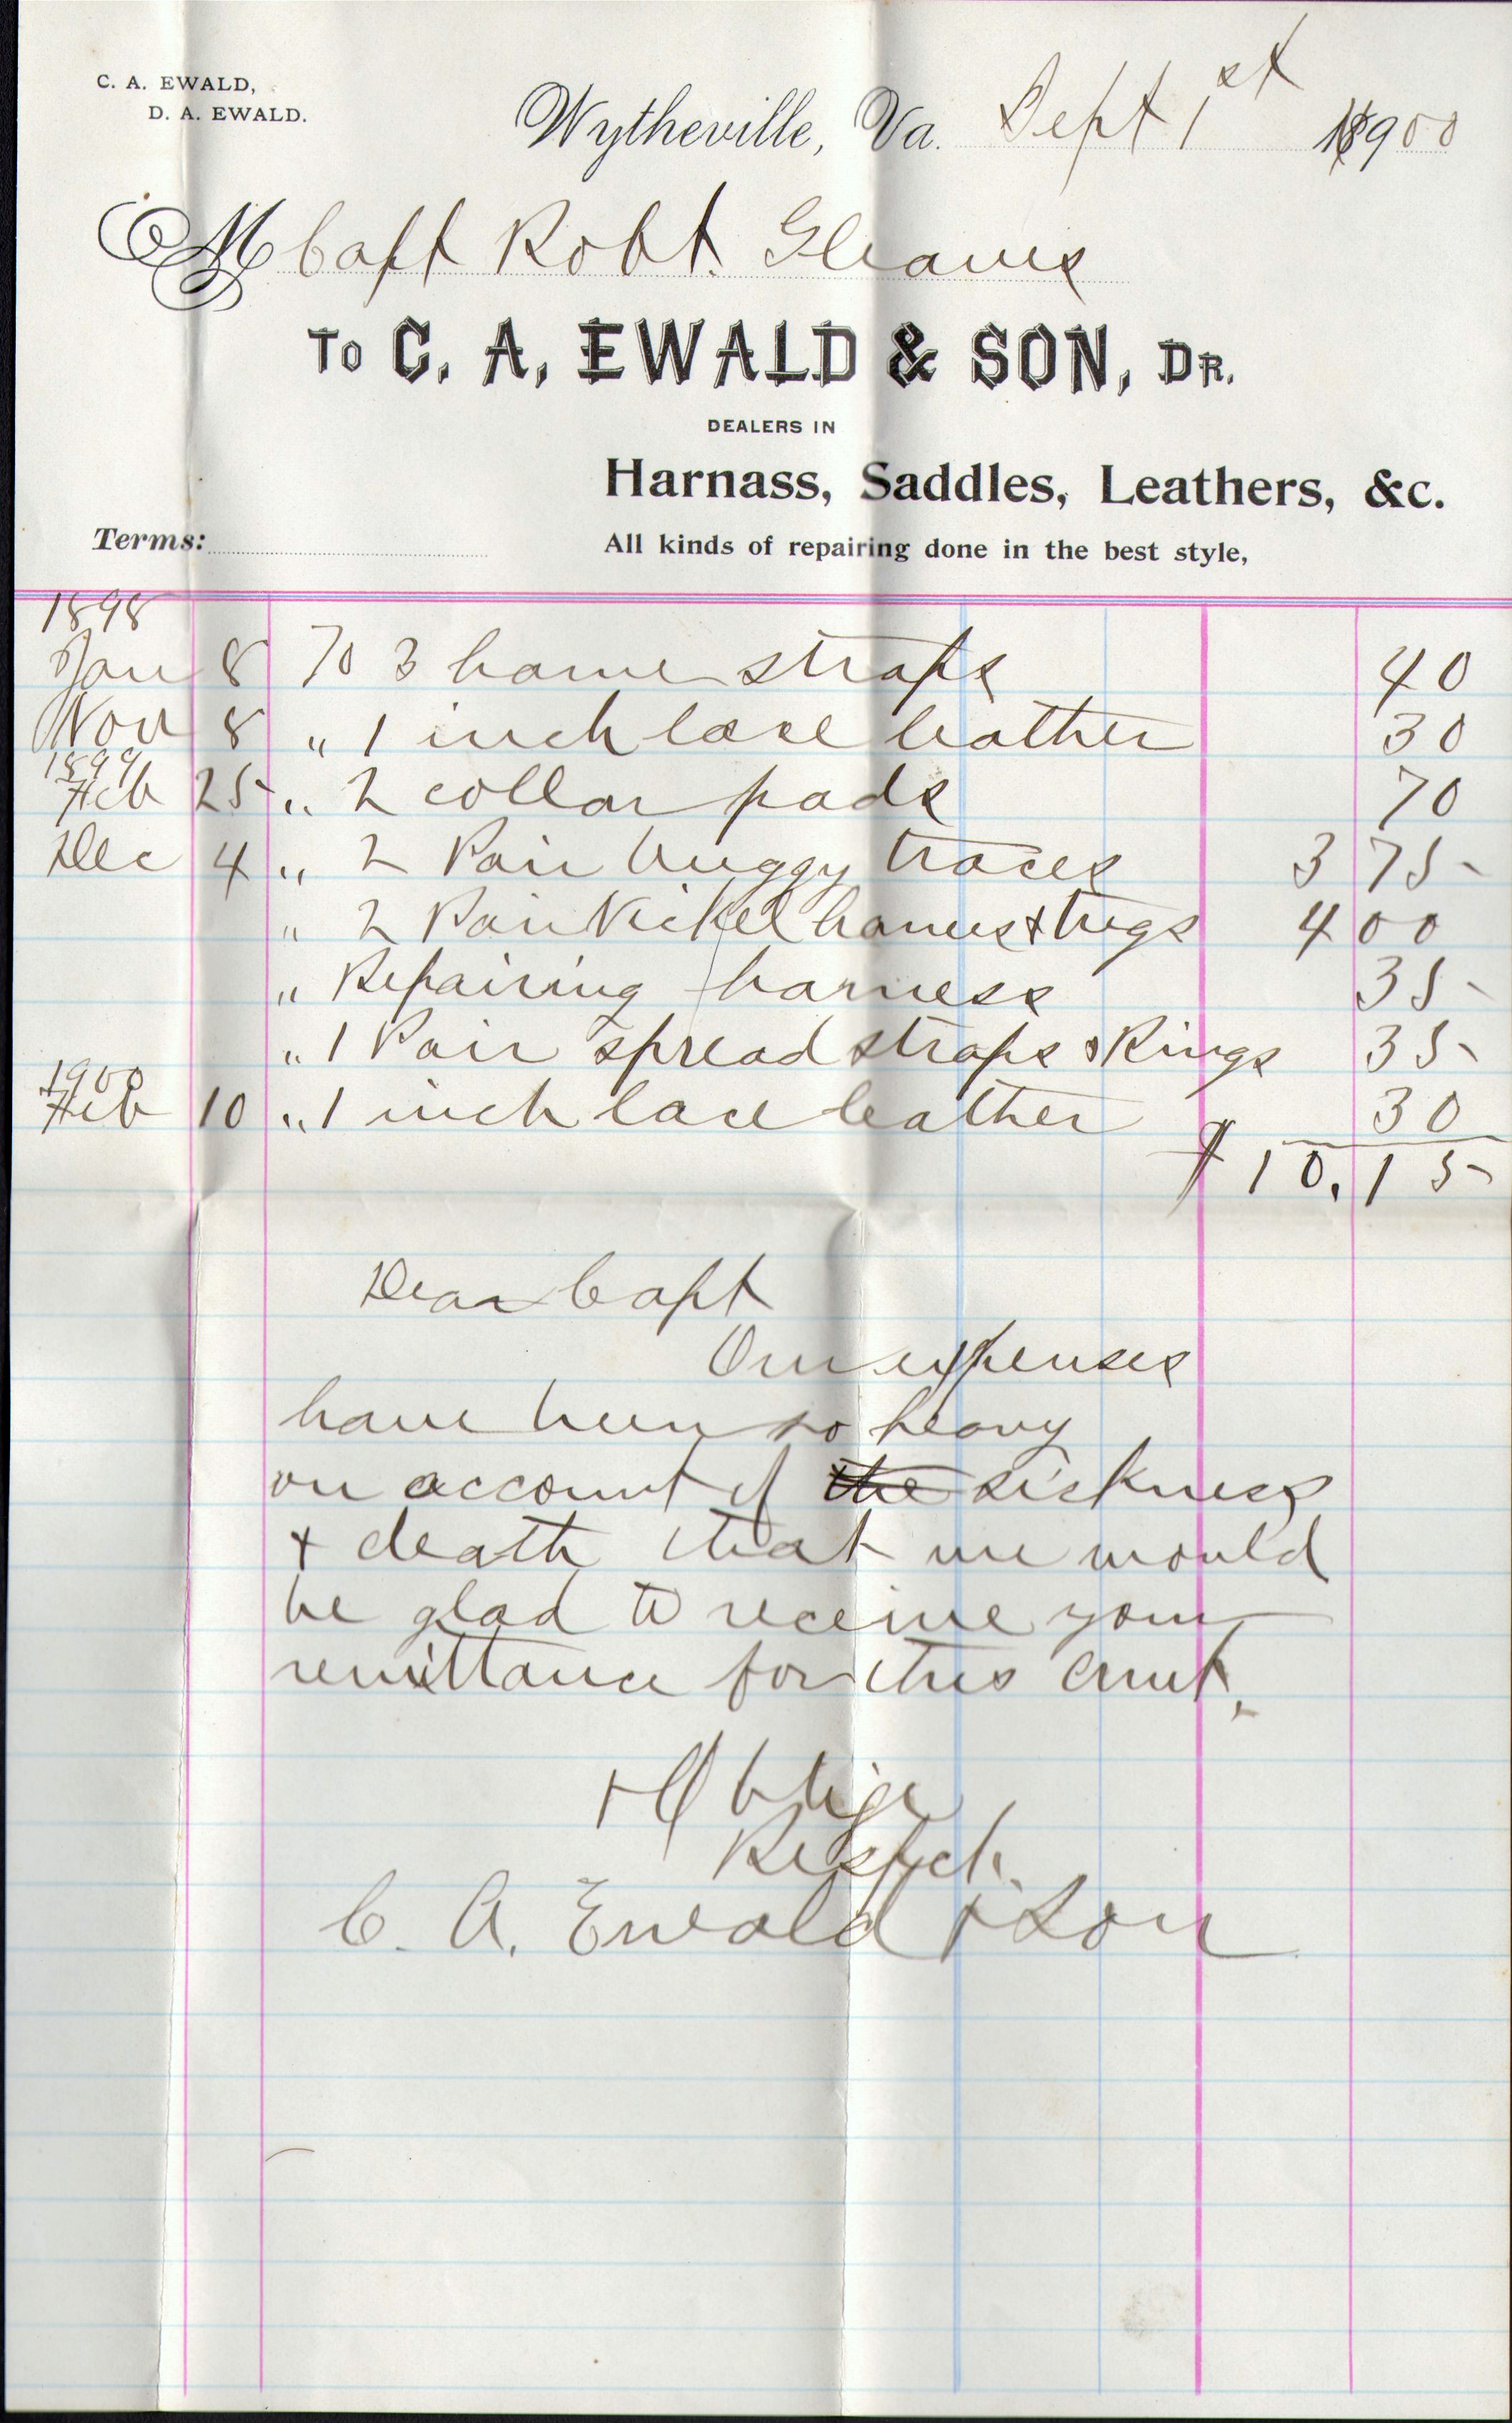 C. A. EWALD,
D. A. EWALD.
Wytheville, Va. Sept 1st 1900
M Capt Robt. Gleaves
To C. A. EWALD & SON, Dr.
DEALERS IN
Harnass, Saddles, Leathers, &c.
Terms:
All kinds of repairing done in the best style,
1898
Jan 8 To 3 hame straps 40
Nov 8 " 1 inch lace leather 30
1899
Feb 25 " 2 collar pads 70
Dec 4 " 2 Pair buggy traces 3 75
" 2 Pair Nickel hames & tugs 4 00
" Repairing harness 35
" 1 Pair spread straps & Rings 35
1900
Feb 10 " 1 inch lace leather 30
$10.15
Dear Capt
Our expenses
have been so heavy
on account of the sickness
& death that we would
be glad to receive your
remittance for this amt.
& Oblige
Respct.
C. A. Ewald & Son